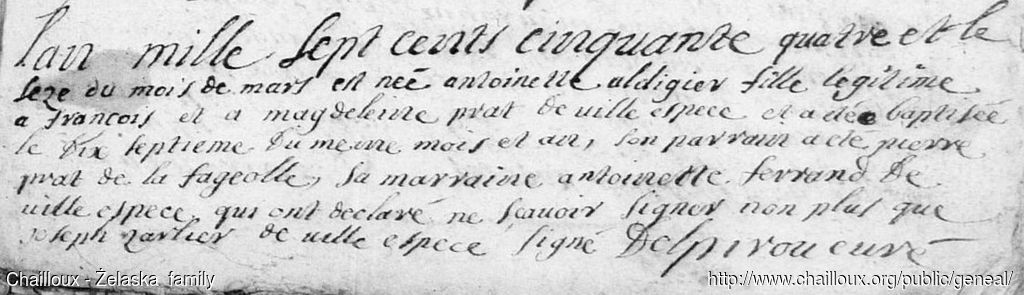 lan mille sept cents cinquante quatre et le
seze du mois de mars est neé antoinette aldigier fille legitime
a francois et a magdeleine prat de ville espece et a été baptisée
le dix septieme du meme mois et an, son parrain a eté pierre
prat de la fageolle, sa marraine antoinette ferrand de
ville espece, qui ont declaré ne scavoir signer non plus que
joseph de ville espece signé Delpirou curé
Chailloux - Želaska family
http://www.chailloux.org/public/geneal/